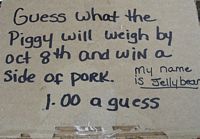 Guess what the
Piggy will weigh by
oct 8th and win a
Side of pork.
my name
is Jellybean
1.00 a guess